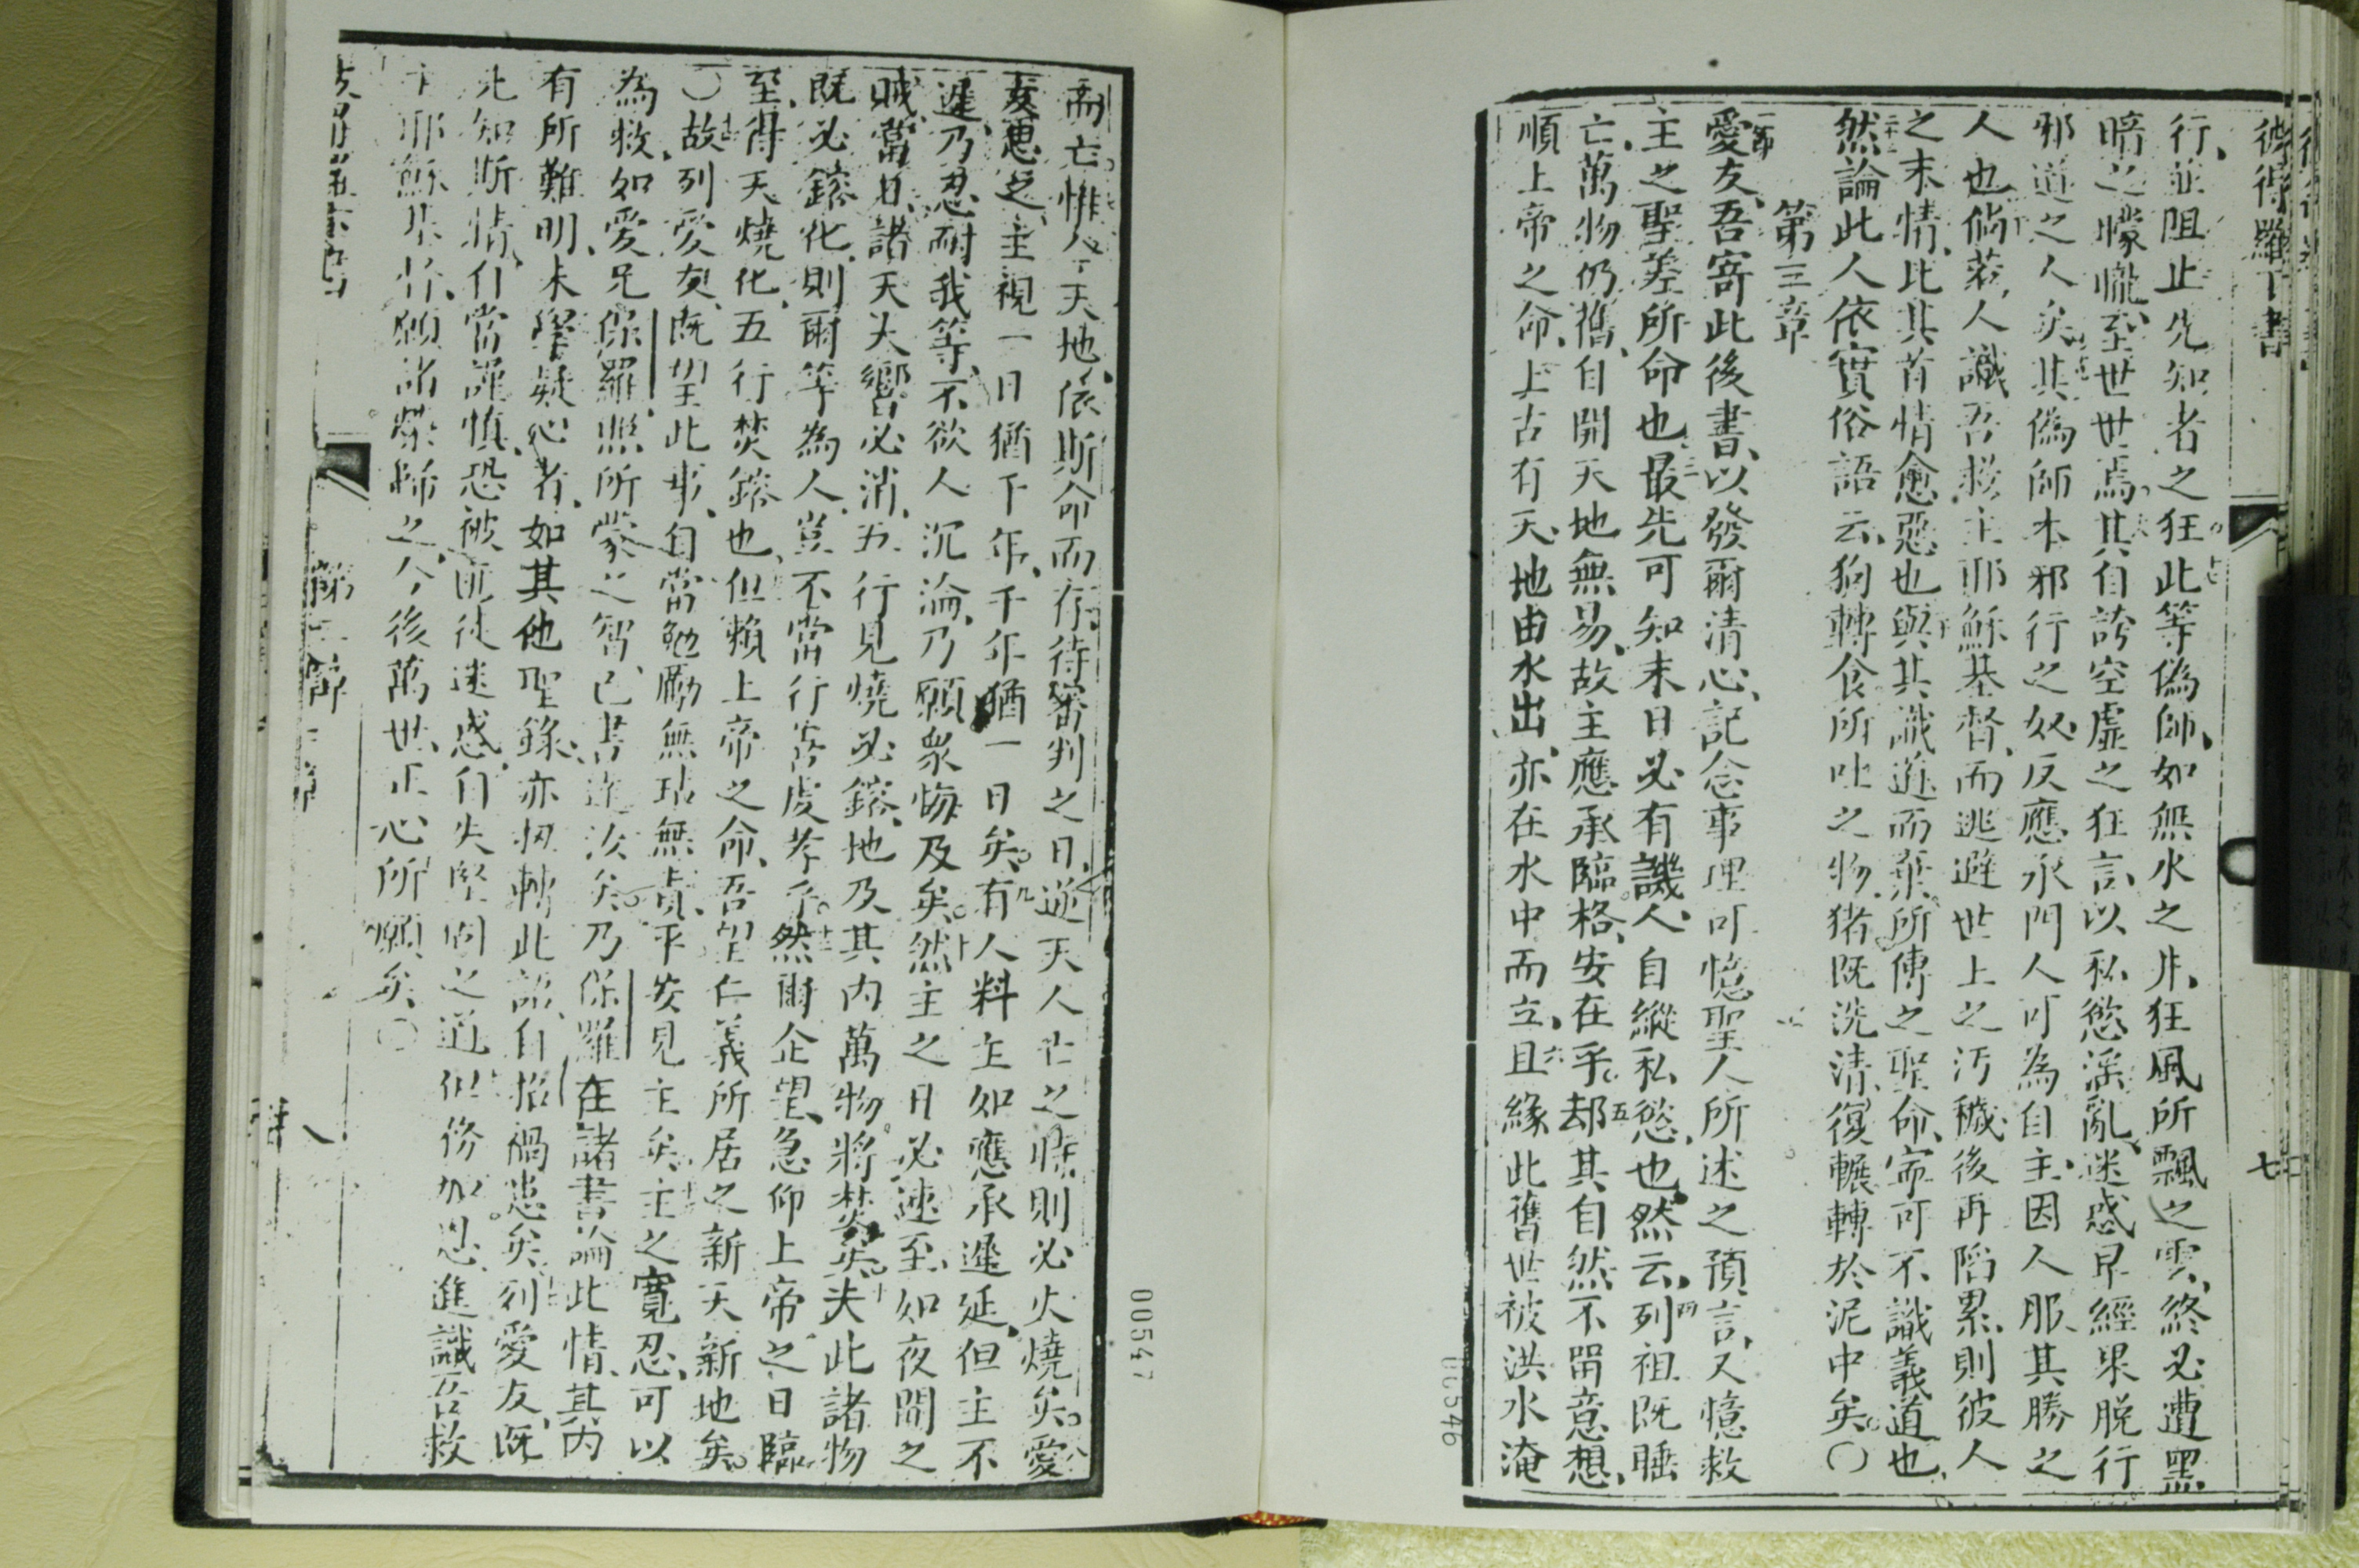 彼得羅下書
七
行、並阻止先知者之狂。此等偽師、如無水之井、狂風所飄之雲、終必遭黑
暗之懞懺、至世世焉。其自誇空虛之狂言、以私慾淫亂、迷惑早經果脫行
邪道之人矣。其偽師本邪行之奴、反應承門人可為自主、因人服其勝之
人也。倘若人識吾救主耶穌基督、而逃避世上之污穢、後再陷累、則彼人
之末情、比其首情愈惡也。與其識遊而棄所傳之聖命、寧可不識義道也、
然論此人依實俗語云、狗轉食所吐之物、猪既洗清、復輾轉於泥中矣。〇
第三章
愛友、吾寄此後書、以發爾清心、記念事理、可憶聖人所述之預言、又憶救
主之聖差所命也。最先可知末日必有譏人、自縱私慾也。然云、列祖既睡
亡、萬物仍舊、自開天地無易、故主應承臨格、安在乎。却其自然不留意想、
順上帝之命、上古有天、地由水出、亦在水中而立、且緣此舊世被洪水淹
00546
而亡。惟今天地、依斯命而存、待審判之日、逆天人亡之時、則必火燒矣。愛
友思之、主視一日猶千年、千年猶一日矣。有人料主如應承遲延、但主不
遲、乃忍耐我等、不欲人沉淪、乃願衆悔及矣。然主之日必速至、如夜間之
賊、當日諸天大響必消、五行見燒必鎔、地及其內萬物將焚矣。夫此諸物
既必鎔化、則爾等為人、豈不當行善虔孝乎。然爾企望、急仰上帝之日臨
至、得天燒化、五行焚鎔也、但賴上帝之命、吾望仁義所居之新天新地矣。
〇故列愛友、既望此事、自當勉勵無玷無責、平安見主矣。主之寬忍、可以
為救、如愛兄保羅照所蒙之智、已書達汝矣。乃保羅在諸書論此情、其內
有所難明、未學疑心者、如其他聖錄、亦拗轉此訟、自招禍患矣。列愛友、既
先知斯情、自當謹慎、恐被匪徒迷惑、自失堅固之道、但務加恩、進識吾救
主耶穌基督、願諸榮歸之、今後萬世、正心所願矣。〇
八
00547